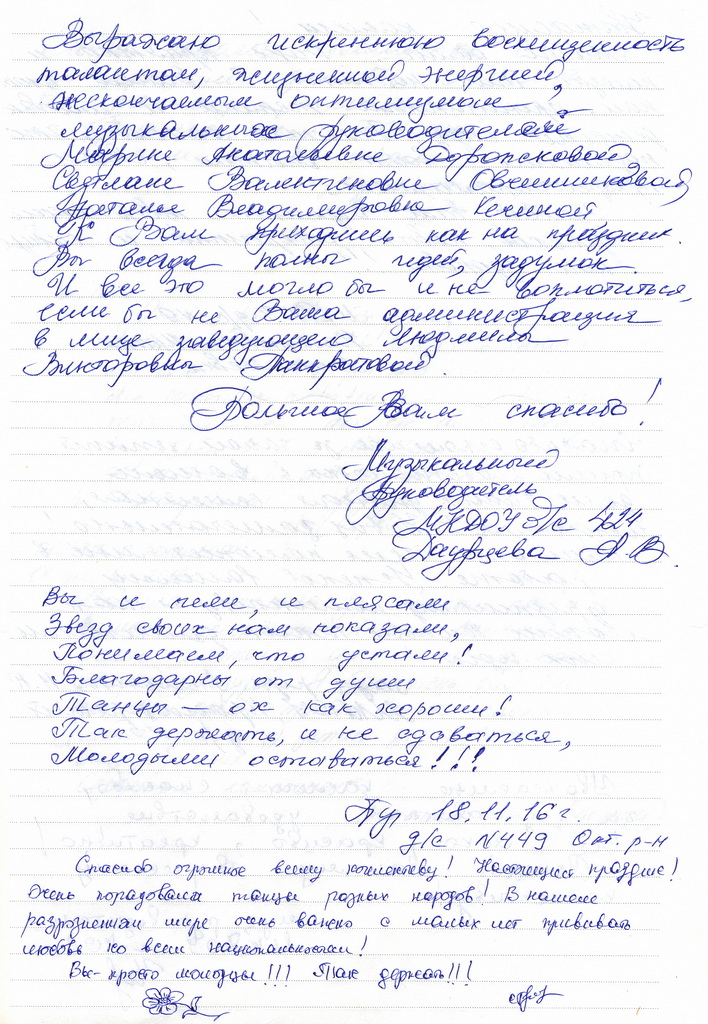 Выражаю искреннюю восхищенность
талантом, жизненной энергией,
нескончаемым оптимизмом
музыкальных руководителей
Марине Анатольевне Доропсковой,
Светлане Валентиновне Овчинниковой,
Наталье Владимировна Кечиной
К Вам приходишь как на праздник.
Вы всегда полны идей, задумок.
И все это могло бы и не воплотиться,
если бы не Ваша администрация
в лице заведующего Людмилы
Викторовны Панкратовой.
Большое Вам спасибо!
Музыкальный
Руководитель
МКДОУ д/с 424
Даурцева А.В.
Вы и пели, и плясали
Звезд своих нам показали,
Понимаем, что устали!
Благодарны от души
Танцы — ох как хороши!
Так держать, и не сдаваться,
Молодыми оставаться!!!
18.11.16 г.
д/с №449 Окт. р-н
Спасибо огромное всему коллективу! Настоящий праздник!
Очень порадовали танцы разных народов! В нашем
разрозненном мире очень важно с малых лет прививать
любовь ко всем национальностям!
Вы - просто молодцы!!! Так держать!!!